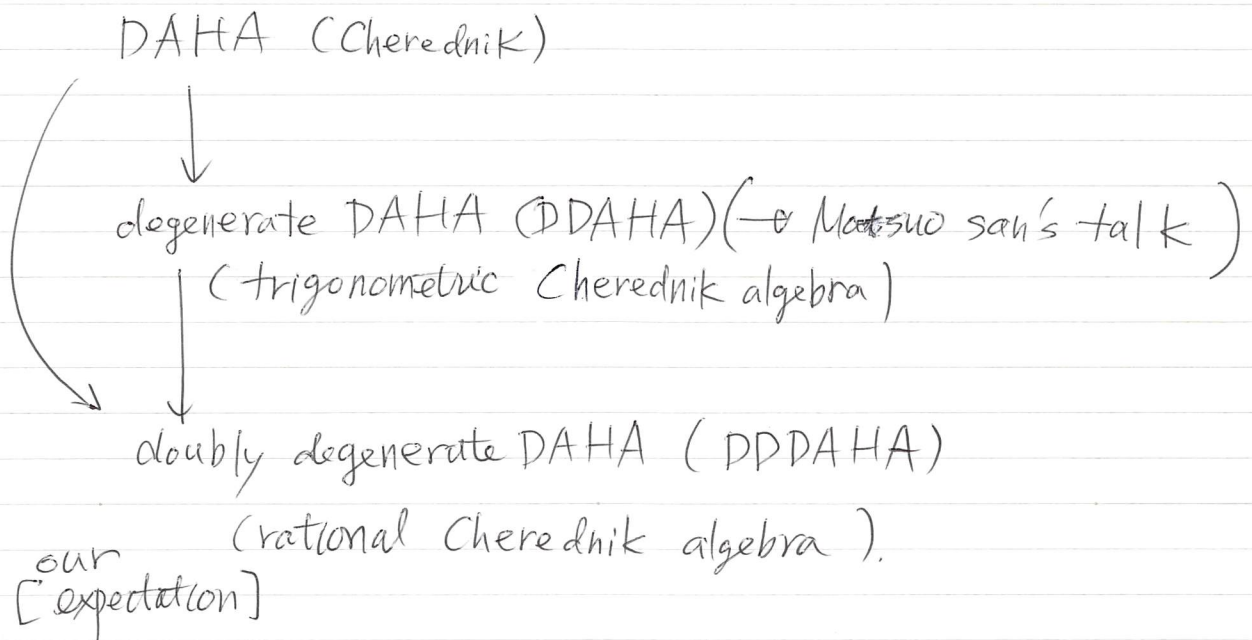 DAHA (Cherednik)
degenerate DAHA (DDAHA) (→ Matsuo san's talk)
(trigonometric Cherednik algebra)
doubly degenerate DAHA (DDDAHA)
(rational Cherednik algebra).
our
[expectation]